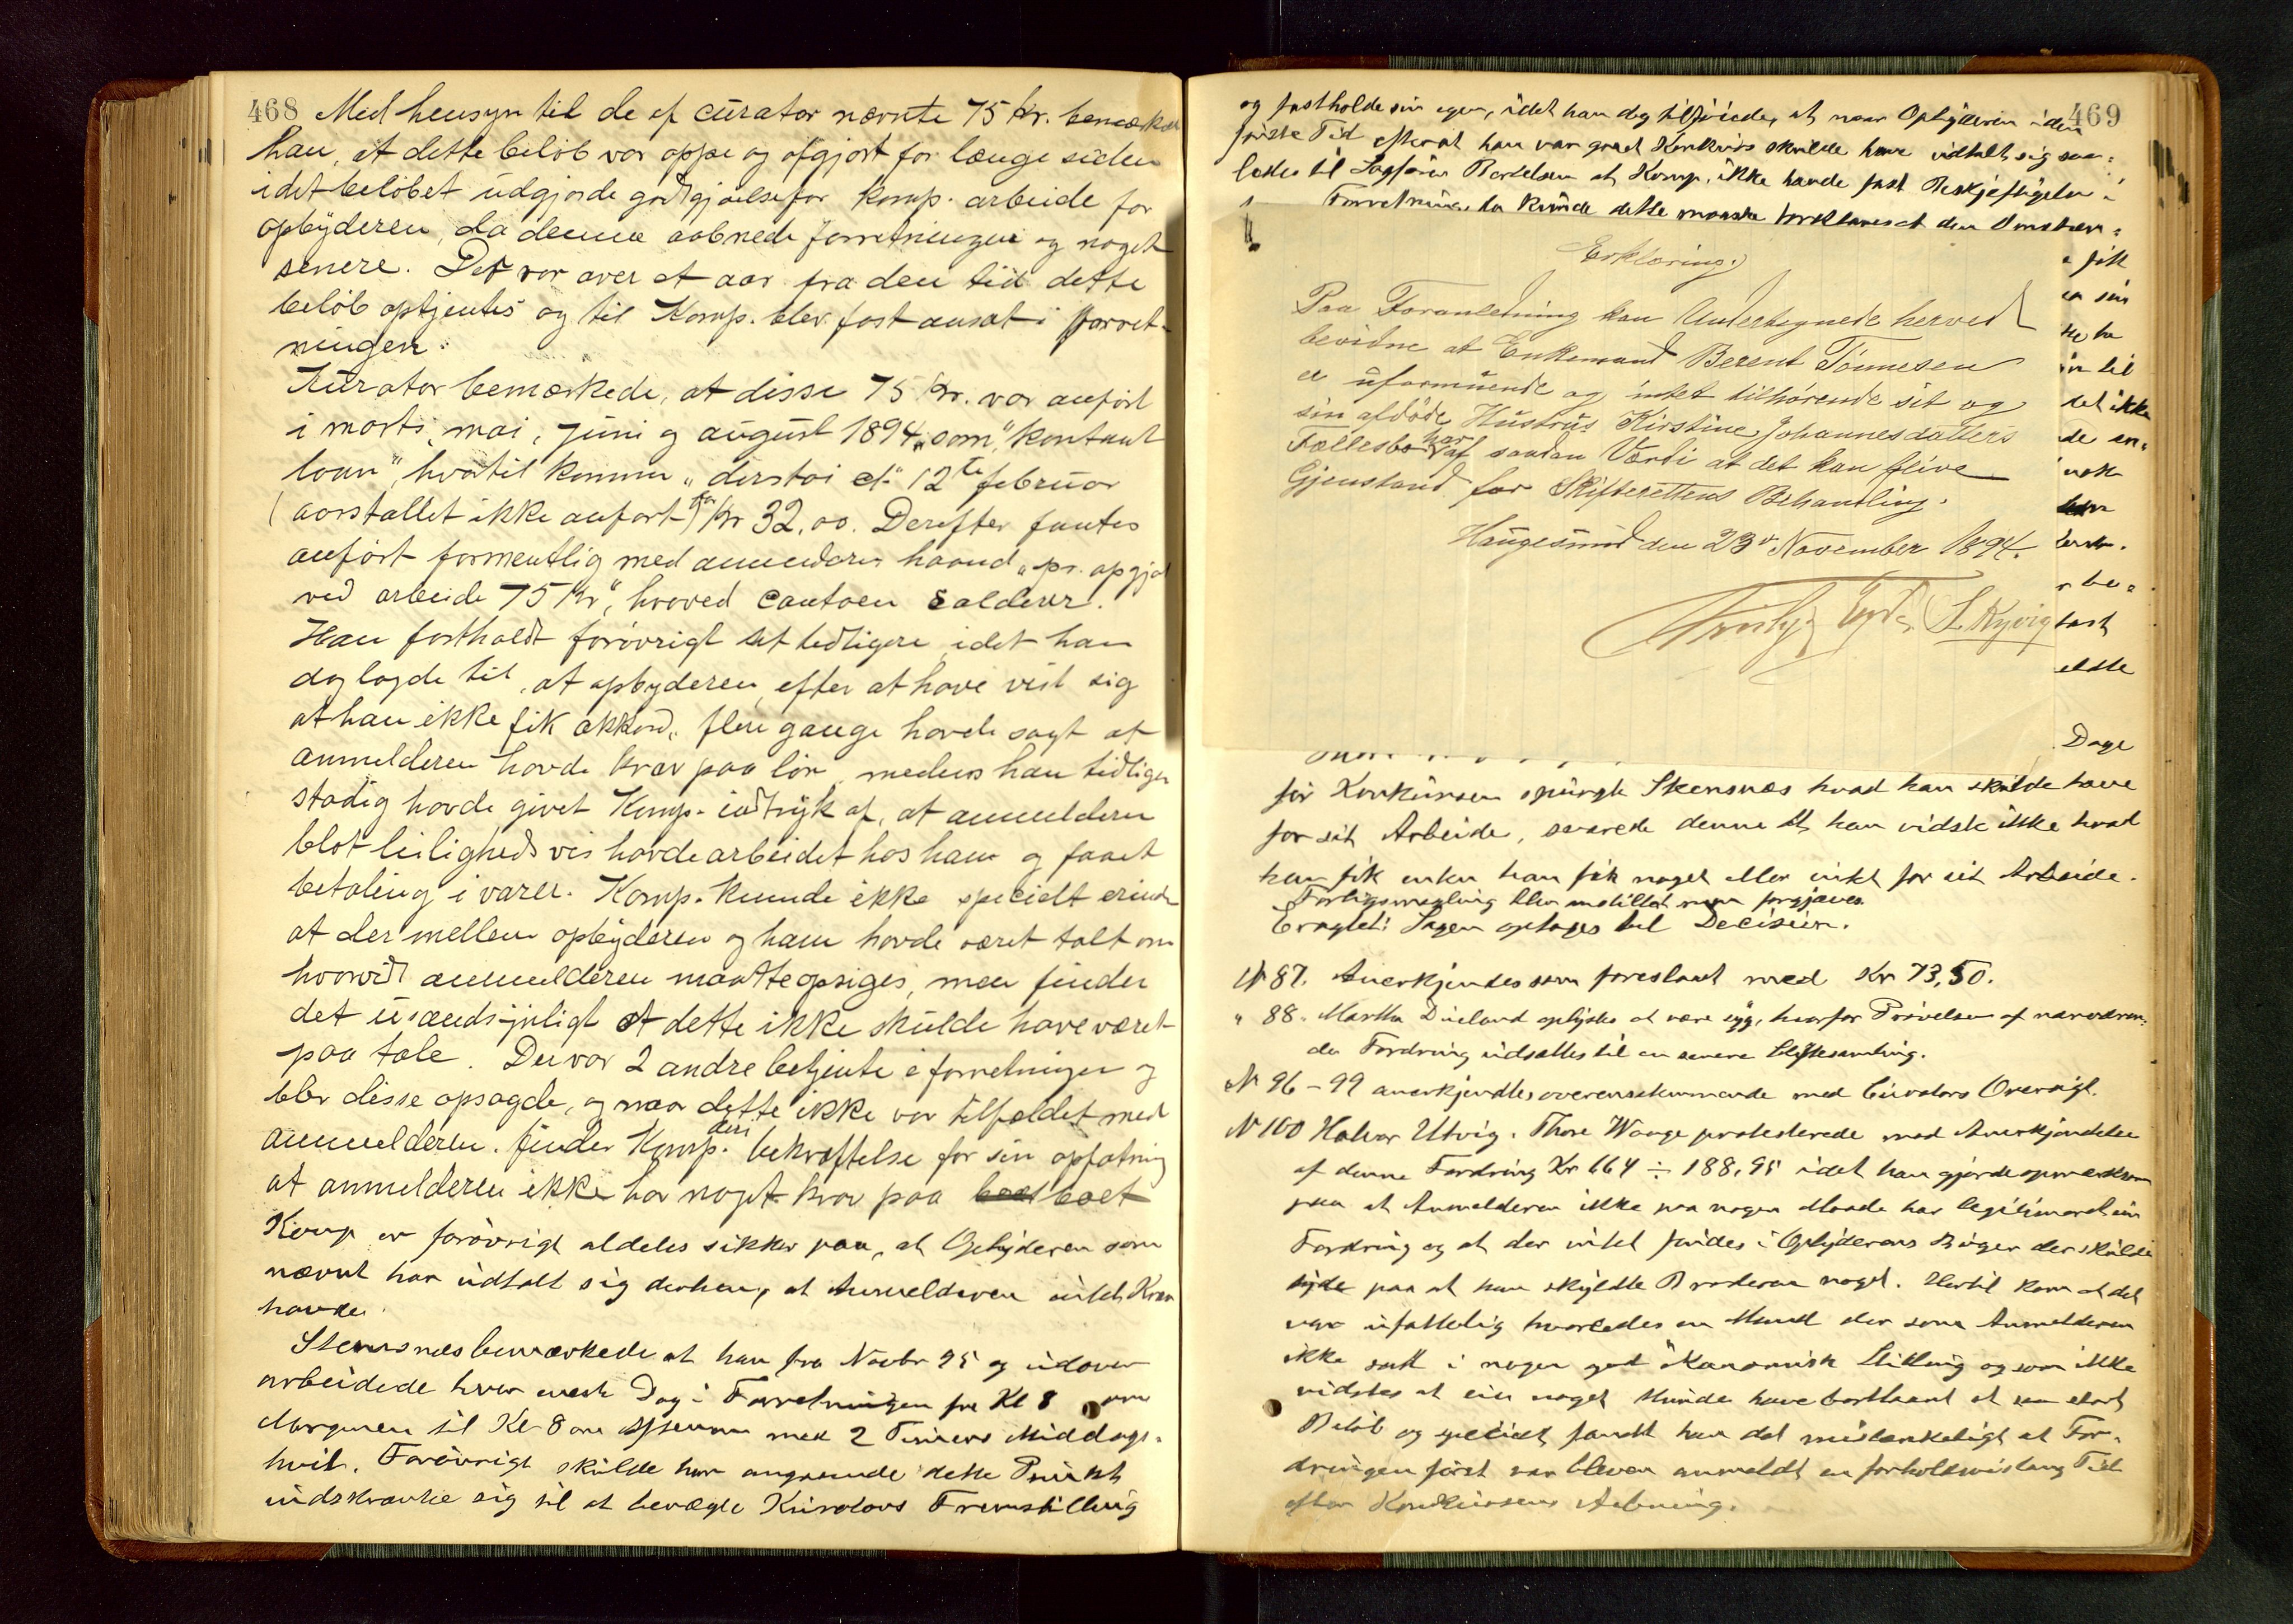 468
Med hensyn til de af curator nævnte 75 Kr. bemærkede
han, at dette beløb var oppe og afgjort for længe siden
idet beløbet udgjorde godtgjørelse for Komp. arbeide for
opbyderen, da denne aabnede forretningen og noget
senere. Det var over et aar fra den tid dette
beløb optjentes og til Komp. blev fast ansat i forret-
ningen.
Kurator bemærkede, at disse 75 Kr. var anført
i marts, mai, juni og august 1894 som "kontant
laan", hvortil kommer "derstoi et" 12te februar
(aarstallet ikke anført) for Kr 32,00. Derefter fantes
anført formentlig med anmelderens haand "pr. opgjør
ved arbeide 75 Kr", hvorved contoen salderer.
Han fastholdt forøvrigt sit tidligere idet han
dog lagde til, at opbyderen, efter at have vist sig
at han ikke fik akkord, flere gange havde sagt at
anmelderen havde krav paa løn, medens han tidligere
stadig havde givet Komp. indtryk af, at anmelderen
blot leilighedsvis havde arbeidet hos ham og faaet
betaling i varer. Komp. kunde ikke specielt erindre
at der mellem opbyderen og ham havde været talt om
hvorvidt anmelderen maatte opsiges, men finder
det usandsynligt at dette ikke skulde have været
paa tale. Der var 2 andre betjente i forretningen og
blev disse opsagde, og naar dette ikke var tilfældet med
anmelderen. finder Komp. deri bekræftelse for sin opfatning
at anmelderen ikke har noget krav paa boet
Komp er forøvrigt aldeles sikker paa, at Opbyderen som
nævnt har udtalt sig derhen, at Anmelderen intet Krav
havde.
Stensnæs bemærkede at han fra Novbr 95 og udover
arbeidede hver eneste Dag i Forretningen fra Kl 8 om
Morgenen til Kl 8 om Aftenen med 2 Timers Middags-
hvil. Forøvrigt skulde han angaaende dette Punkt
indskrænke sig til at benægte Kurators Fremstilling
469
og fastholde sin egen, idet han dog tilføiede, at naar Opbyderen i den
første Tid efterat han var gaaet Konkurs skulde have udtalt sig saa-
ledes til Sagfører Bertelsen at Komp. ikke havde fast Beskjæftigelse i
Forretningen, da kunde dette maaske forklares at den Omstæn-
Erklæring.
Paa Foranledning kan Undertegnede herved
bevidne at Enkemand Berent Tønnesen
er uformuende og intet tilhørende sit og
sin afdøde Hustrus Kirstine Johannesdatters
Fællesbo har af saadan Værdi at det kan blive
Gjenstand for Skifterettens Behandling.
Haugesund den 23de November 1894.
S. Kyvig
fik
sin
ha
til
det ikke
de en-
nok
be-
fast
elste
Dage
før Konkursen spurgte Stensnæs hvad han skulde have
for sit Arbeide, svarede denne at han vidste ikke hvad
han fik enten han fik noget eller intet for sit Arbeide.
Forligsmægling blev indstillet men forgjæves.
Eragtet: Sagen optages til Decision.
N 87. Anerkjendes som foreslaaet med Kr 73,50.
" 88. Martha Dueland oplystes at være syg, hvorfor Prøvelsen af nærværen-
de Fordring udsættes til en senere Skiftesamling.
N 96 - 99 anerkjendtes overensstemmende med Curators Oversigt.
N 100 Halvor Utvig. Thore Waage protesterede mod Anerkjendelse
af denne Fordring Kr 664 ÷ 188,95 idet han gjorde opmærksom
paa at Anmelderen ikke paa nogen Maade har legitimeret sin
Fordring og at der intet findes i Opbyderens Bøger der skulde
tyde paa at han skyldte Broderen noget. Hertil kom at det
var ufattelig hvorledes en Mand der som Anmelderen
ikke satt i nogen god økonomisk Stilling og som ikke
vidstes at eie noget kunde have bortlaant et saa stort
Beløb og specielt fandt han det mistænkeligt at For-
dringen først var bleven anmeldt en forholdsvis lang Tid
efter Konkursens Aabning.